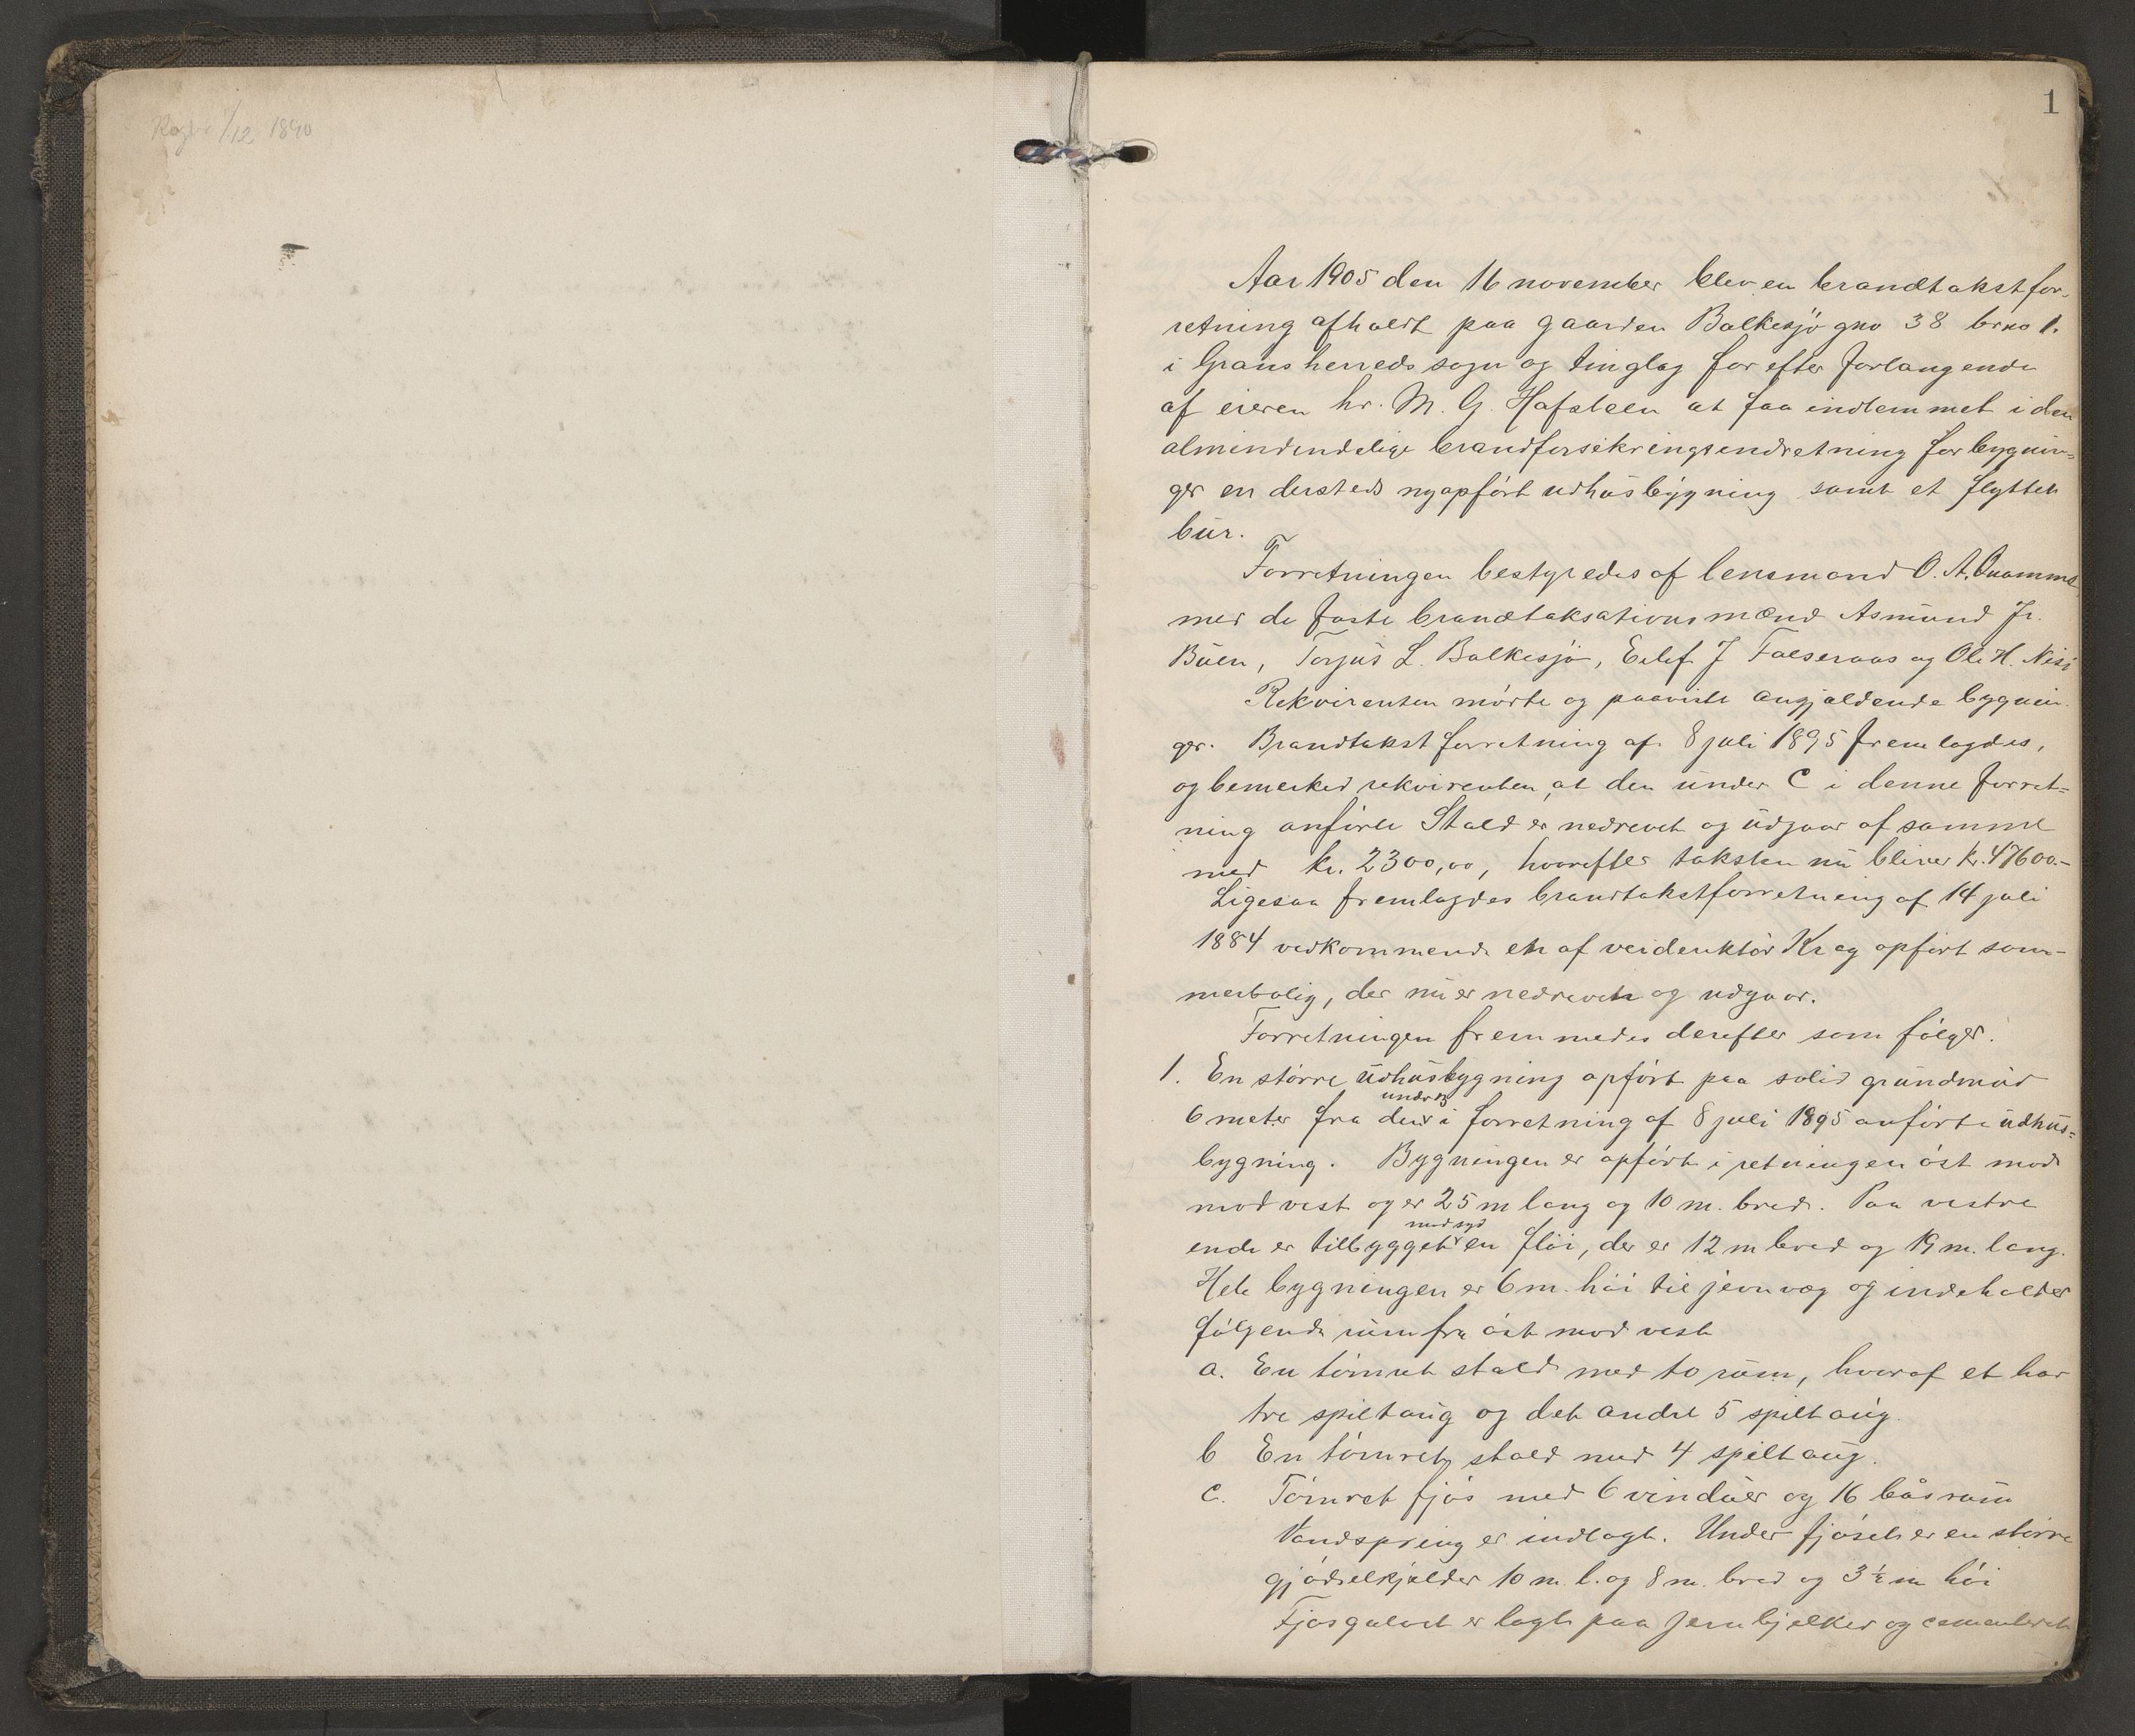 1
Aar 1905 den 16 november blev en brandtakstfor-
retning afholdt paa gaarden Bolkesjø gno 38 brno 1.
i Gransherreds sogn og tinglag for efter forlangende
af eieren hr. M. G. Hafsteen at faa indlemmet i den
almindendelige brandforsikringsindretning for bygnin=
ger en dersteds nyopført udhusbygning samt et flyttet
bur.
Forretningen bestyredes af lensmand O. A.
med de faste brandtaksationsmænd Asmund Jr.
Buen, Torjus L. Bolkesjø, Eilef J Folseraas og Ole H. Nisi
Rekvirenten mødte og paaviste angjældende bygnin-
ger. Brandtakstforretning af 8 juli 1895 fremlagdes,
og bemerked rekvirenten, at den under C i denne forret=
ning anførte Stald er nedrevet og udgaar af samme
med kr. 2300,00, hvorefter taksten nu bliver kr. 47600.-
Ligesaa fremlagdes brandtakstforretning af 14 juli
1884 vedkommende en af veidirektør Krag opført som-
merbolig, der nu er nedrevet og udgaar.
Forretningen fremmedes derefter som følger.
1. En større udhusbygning opført paa solid grundmur
under
6 meter fra den i forretning af 8 juli 1895 anførte udhus=
bygning. Bygningen er opført i retningen øst mod
mod vest og er 25 m lang og 10 m. bred. Paa vestre
mod syd
ende er tilbygget en fløi, der er 12 m bred og 19 m. lang.
Hele bygningen er 6 m. høi til jevnvæg og indeholder
følgende rum fra øst mod vest
a. En tømret stald med to rum, hvoraf et har
tre spiltaug og det andre 5 spiltaug.
b En tømret stald med 4 spiltaug.
c. Tømret fjøs med 6 vinduer og 16 båsrum
Vandspring er indlagt. Under fjøset er en større
gjødselkjelder 10 m. l. og 8 m. bred og 3 ½ m høi
Fjøsgulvet er lagt paa jernbjelker og cementeret